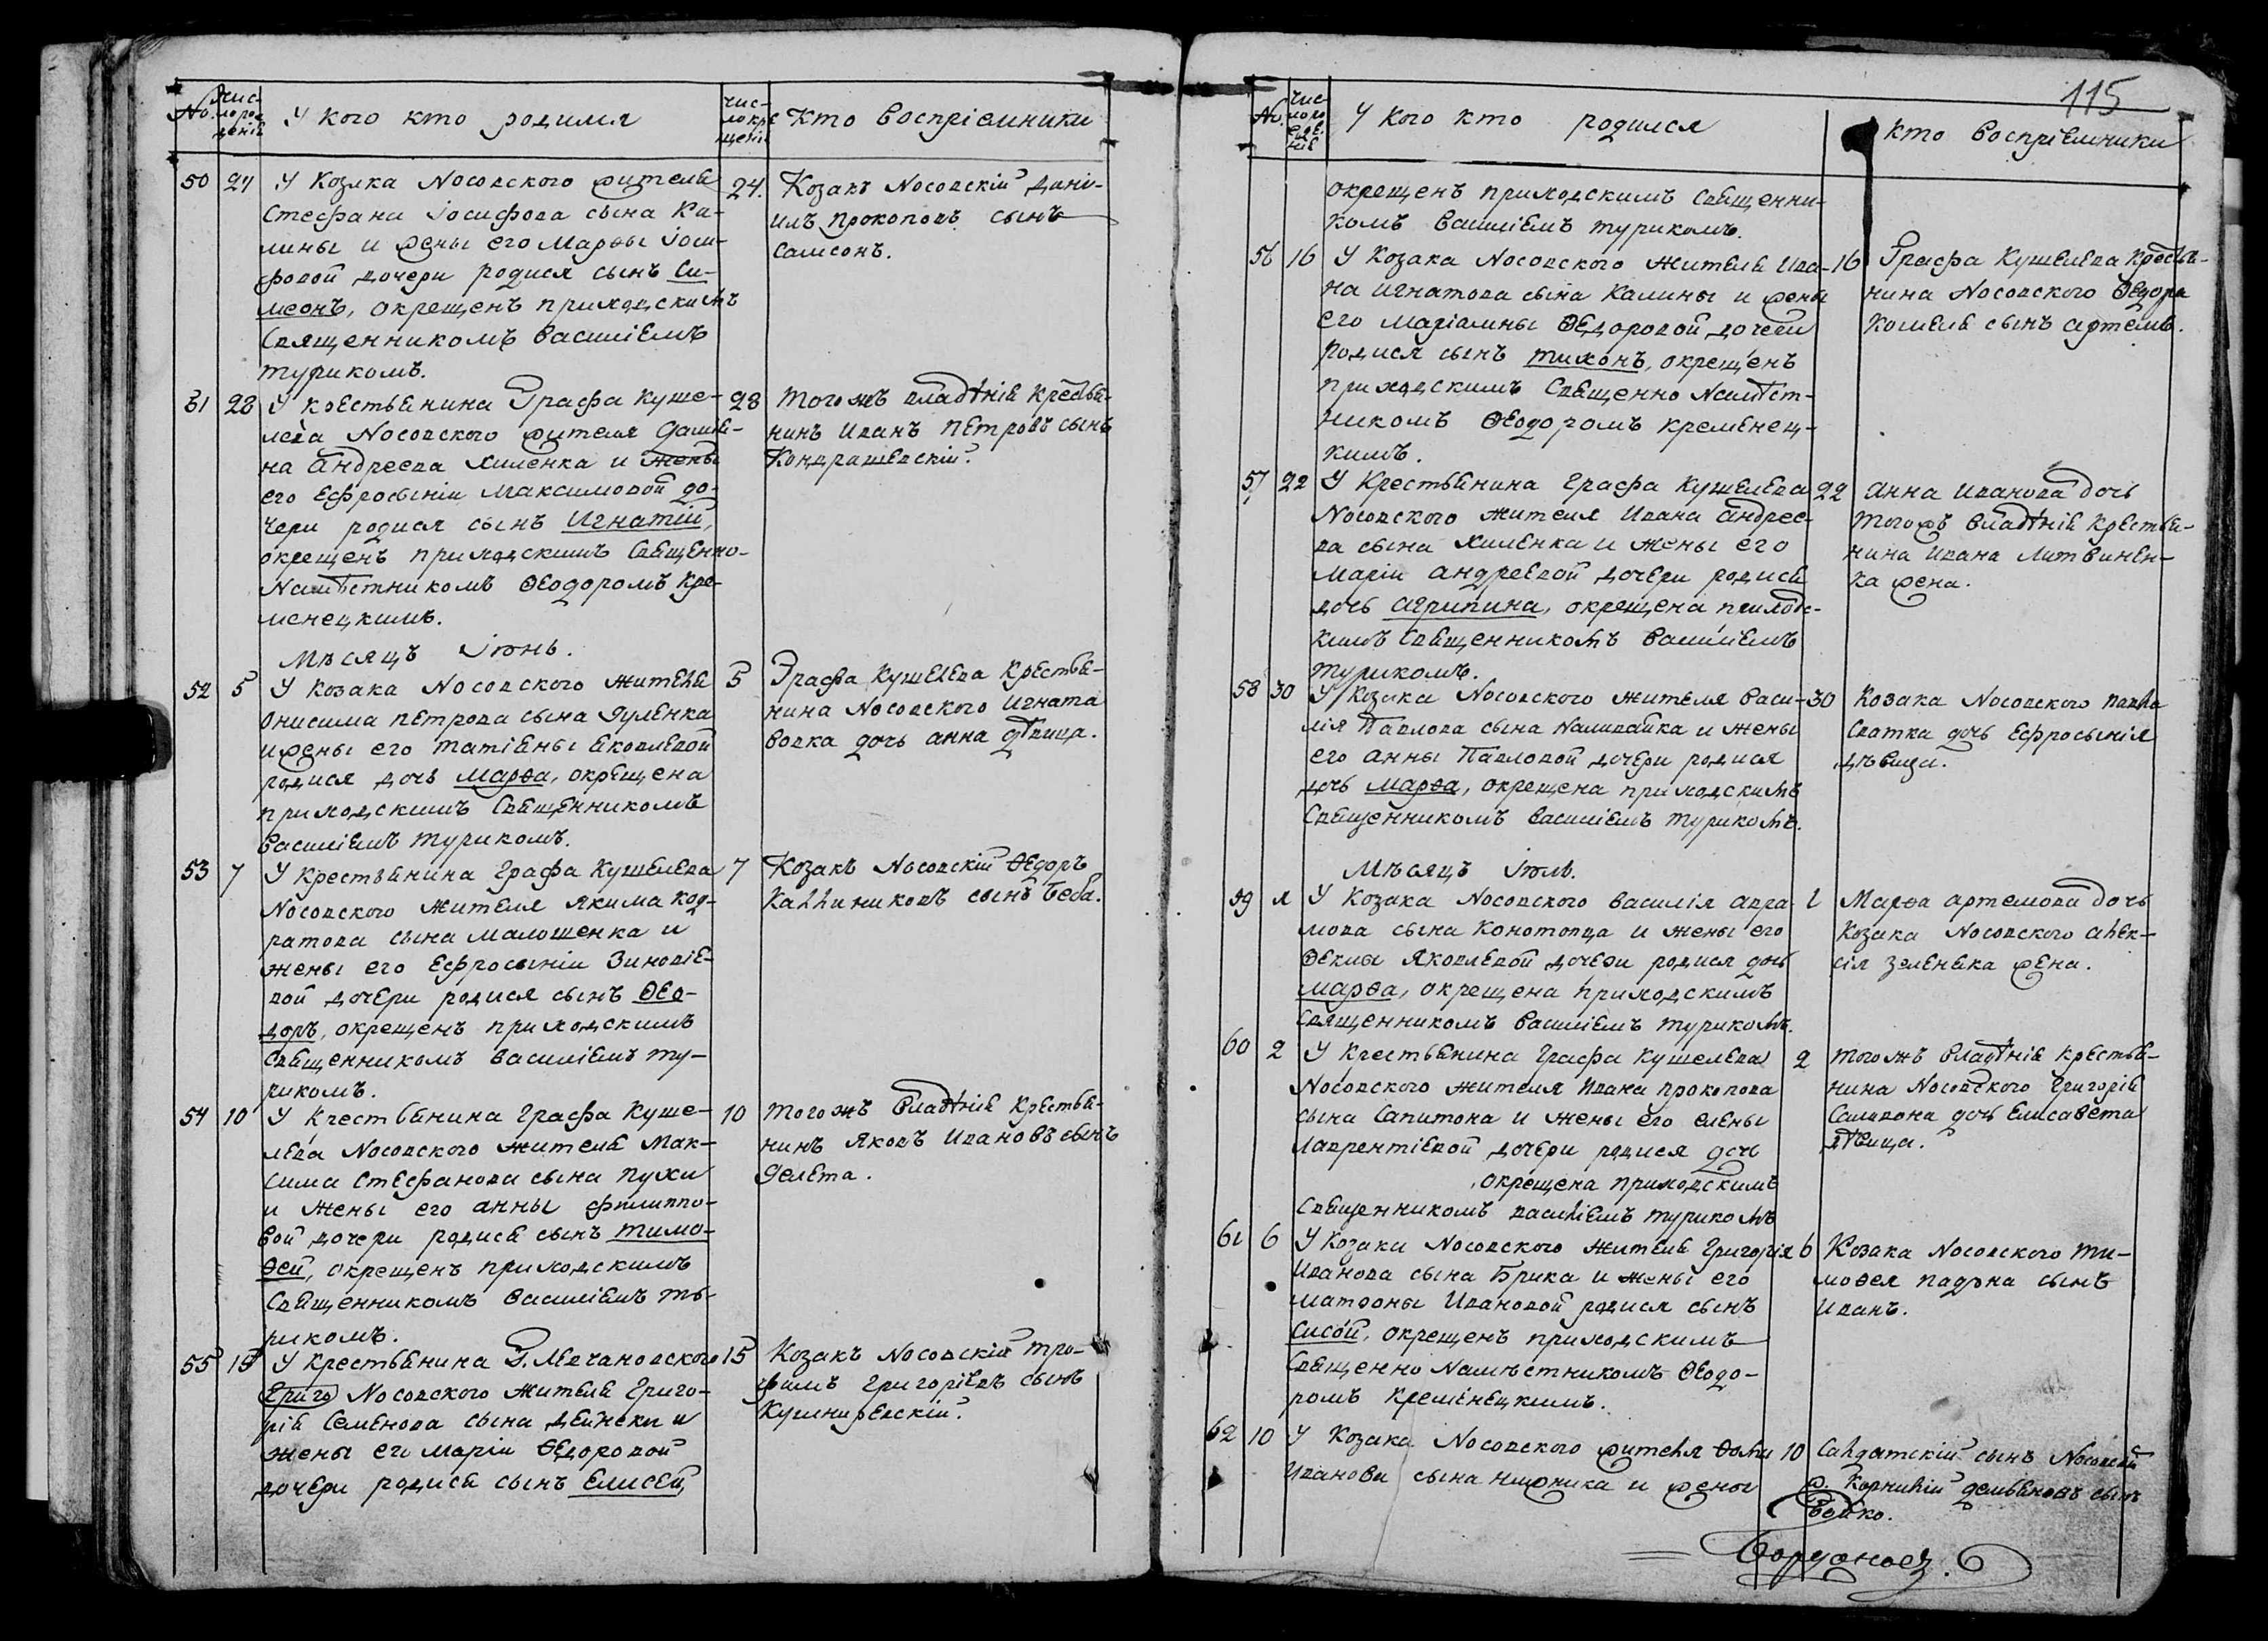 No. Число рождения У кого кто родился Число крещения Кто восприемники
50 24 У Козака Носовского жителя
Стефана Іосифова сына Ка-
лины и жены его Марфы Іоси-
фовой дочери родися сынъ Си-
меонъ, окрещенъ приходскимъ
Священникомъ Василіемъ
Турикомъ.
24. Козакъ Носовскій Дани-
илъ Прокоповъ сынъ
Самсонъ.
51 28 У крестьянина Графа Куше-
лева Носовского жителя Дамя-
на Андреева Хименка и жены
его Ефросыніи Максимовой до-
чери родися сынъ Игнатій,
окрещенъ приходскимъ Священно-
Намѣстникомъ Ѳеодоромъ Кре-
менецкимъ.
28 Того жъ владѣнія крестья-
нинъ Иванъ Петровъ сынъ
Кондрашевскій.
Мѣсяцъ Іюнь.
52 5 У Козака Носовского жителя
Онисима Петрова сына Гуленка
и жены его Татіяны Яковлевой
родися дочь Марѳа, окрещена
приходскимъ Священникомъ
Василіемъ Турикомъ.
5 Графа Кушелева крестья-
нина Носовского Игната
Вовка дочь Анна дѣвица.
53 7 У крестьянина Графа Кушелева
Носовского жителя Якима Код-
ратова сына Малошенка и
жены его Ефросыніи Зиновіе-
вой дочери родися сынъ Ѳео-
доръ, окрещенъ приходскимъ
Священникомъ Василіемъ Ту-
рикомъ.
7 Козакъ Носовскій Ѳедоръ
Каллиниковъ сынъ Беба.
54 10 У крестьянина Графа Куше-
лева Носовского жителя Мак-
сима Стефанова сына Пухи
и жены его Анны Филиппо-
вой дочери родися сынъ Тимо-
ѳей, окрещенъ приходскимъ
Священникомъ Василіемъ Ту-
рикомъ.
10 Того жъ владѣнія крестья-
нинъ Яковъ Ивановъ сынъ
Гелета.
55 15 У крестьянина Г. Мечановского
Григо Носовского жителя Григо-
рія Семенова сына Дейнеки и
жены его Маріи Ѳедоровой
дочери родися сынъ Елисей,
15 Козакъ Носовскій Тро-
фимъ Григоріевъ сынъ
Кушниревскій.
115
No. Число рождения У кого кто родился Кто восприемники
окрещенъ приходскимъ Священни-
комъ Василіемъ Турикомъ.
56 16 У Козака Носовского жителя Ива-
на Игнатова сына Калины и жены
его Маріамны Ѳедоровой дочери
родися сынъ Тихонъ, окрещенъ
приходскимъ Священно Намѣст-
никомъ Ѳеодоромъ Кременец-
кимъ.
16 Графа Кушелева крестья-
нина Носовского Ѳедора
Кошеля сынъ Артемъ.
57 22 У крестьянина Графа Кушелева
Носовского жителя Ивана Андрее-
ва сына Хименка и жены его
Маріи Андреевой дочери родися
дочь Агрипина, окрещена приход-
скимъ Священникомъ Василіемъ
Турикомъ.
22 Анна Иванова дочь
того жъ владѣнія крестья-
нина Ивана Литвинен-
ка жена.
58 30 У Козака Носовского жителя Васи-
лія Павлова сына Наливайка и жены
его Анны Павловой дочери родися
дочь Марѳа, окрещена приходскимъ
Священникомъ Василіемъ Турикомъ.
30 Козака Носовского Павла
Сватка дочь Ефросынія
дѣвица.
Мѣсяцъ Іюль.
59 1 У Козака Носовского Василія Авра-
мова сына Конотопца и жены его
Ѳеклы Яковлевой дочери родися дочь
Марѳа, окрещена приходскимъ
Священникомъ Василіемъ Турикомъ.
1 Марѳа Артемова дочь
Козака Носовского Алек-
сія Зеленяка жена.
60 2 У крестьянина Графа Кушелева
Носовского жителя Ивана Прокопова
сына Сапитона и жены его Елены
Лаврентіевой дочери родися дочь
, окрещена приходскимъ
Священникомъ Василіемъ Турикомъ
2 Того жъ владѣнія крестья-
нина Носовского Григорія
Саливона дочь Елисавета
дѣвица.
61 6 У Козака Носовского жителя Григорія
Иванова сына Брика и жены его
Матроны Ивановой родися сынъ
Сисой, окрещенъ приходскимъ
Священно Намѣстникомъ Ѳеодо-
ромъ Кременецкимъ.
6 Козака Носовского Ти-
моѳея Падуна сынъ
Иванъ.
62 10 У Козака Носовского жителя Ѳомы
Иванова сына Нижника и жены
10 Салдатскій сынъ Носовскій
ж. Корнилій Демьяновъ сынъ
Бойко.